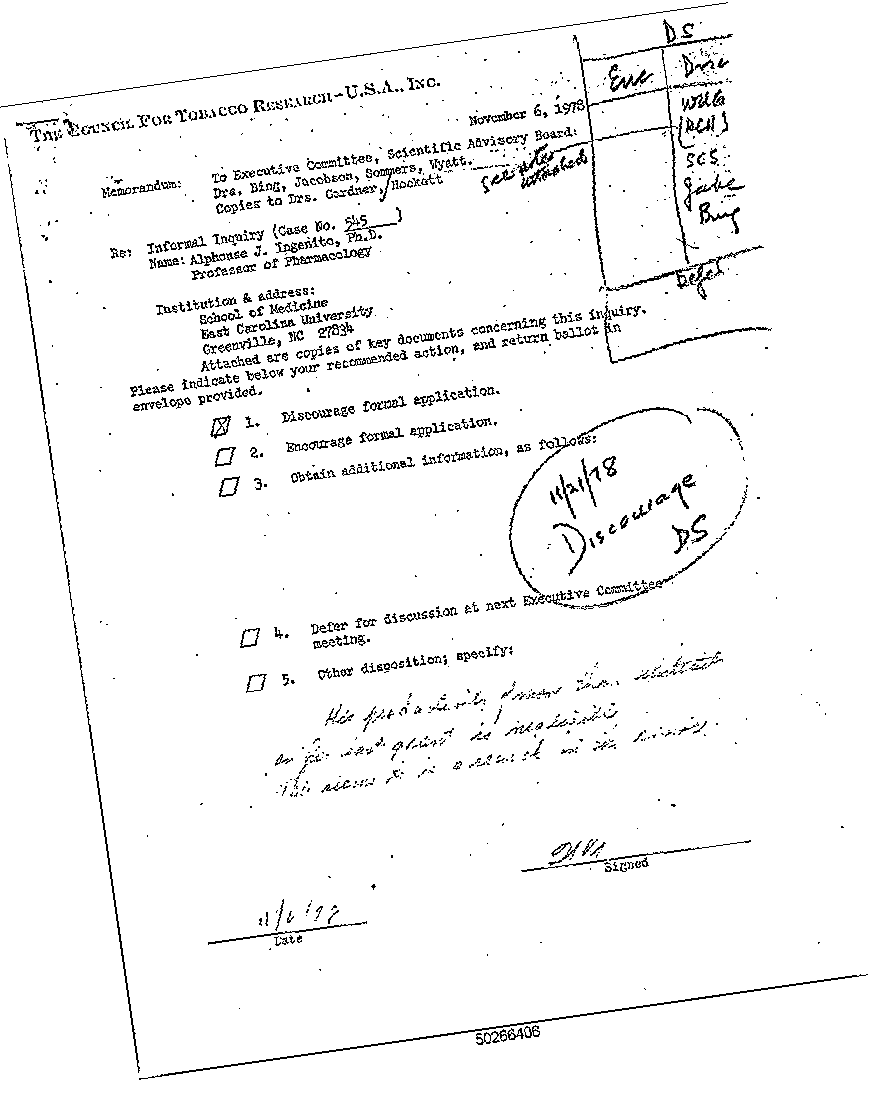 THE COUNCIL FOR TOBACCO RESEARCH-U.S.A., INC.
DS
Enc Disc
WUG
(RCH)
SCS
Jake
Bing
Defer
November 6, 1978
Memorandum: To Executive Committee, Scientific Advisory Board:
Drs. Bing, Jacobson, Sommers, Wyatt.
Copies to Drs. Gardner/Hockett
see notes
attached
Re: Informal Inquiry (Case No. 545 )
Name: Alphonse J. Ingenito, Ph.D.
Professor of Pharmacology
Institution & address:
School of Medicine
East Carolina University
Greenville, NC 27834
Attached are copies of key documents concerning this inquiry.
Please indicate below your recommended action, and return ballot in
envelope provided.
☒ 1. Discourage formal application.
☐ 2. Encourage formal application.
☐ 3. Obtain additional information, as follows:
11/21/78
Discourage
DS
☐ 4. Defer for discussion at next Executive Committee
meeting.
☐ 5. Other disposition; specify:
His productivity from the abstract
on his last grant is negligible
This
Signed
11/6/78
Date
50266406